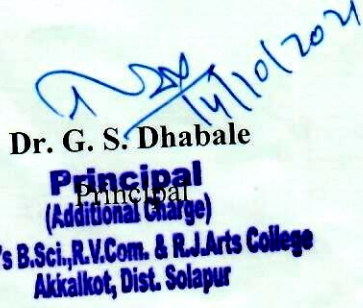 14/10/2021
Dr. G. S. Dhabale
Principal
Principal
(Additional Charge)
's B.Sci.,R.V.Com. & R.J.Arts College
Akkalkot, Dist. Solapur